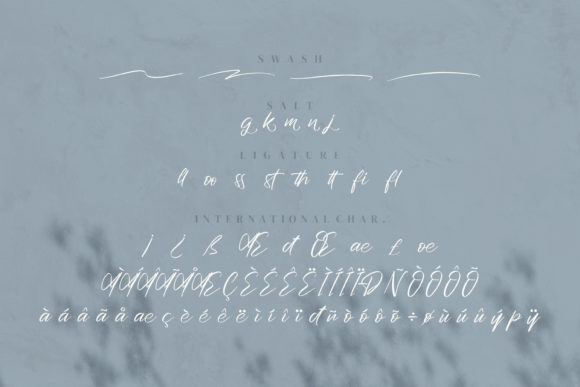 SWASH
SALT
g k m n j
LIGATURE
ll oo ss st th tt fi fl
INTERNATIONAL CHAR.
¡ ¿ ß Æ đ Œ ae ł oe
ÀÁÂÃÄÅÆÇÈÉÊËÌÍÎÏÐÑÒÓÔÕ
àáâãåaeçèéêëìíîïđñòóôõ÷øùúûýþÿ